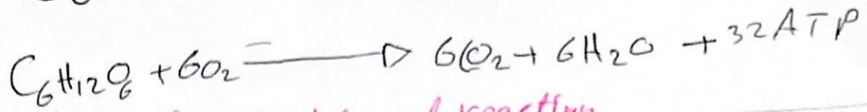 C₆H₁₂O₆ + 6O₂ ⟶ 6CO₂ + 6H₂O + 32ATP